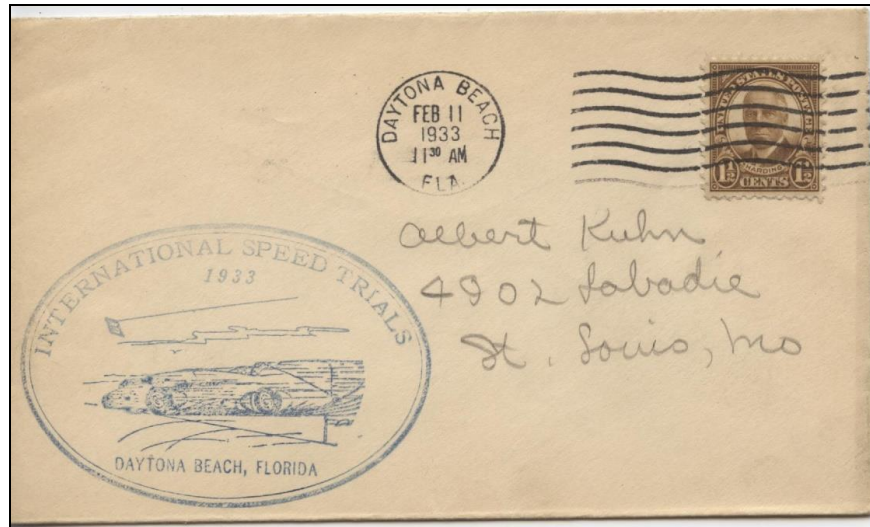 DAYTONA BEACH
FEB 11
1933
11 30 AM
FLA.
UNITED STATES POSTAGE
HARDING
1½ CENTS 1½
Albert Kuhn
4902 Labadie
St. Louis, Mo
INTERNATIONAL SPEED TRIALS
1933
DAYTONA BEACH, FLORIDA